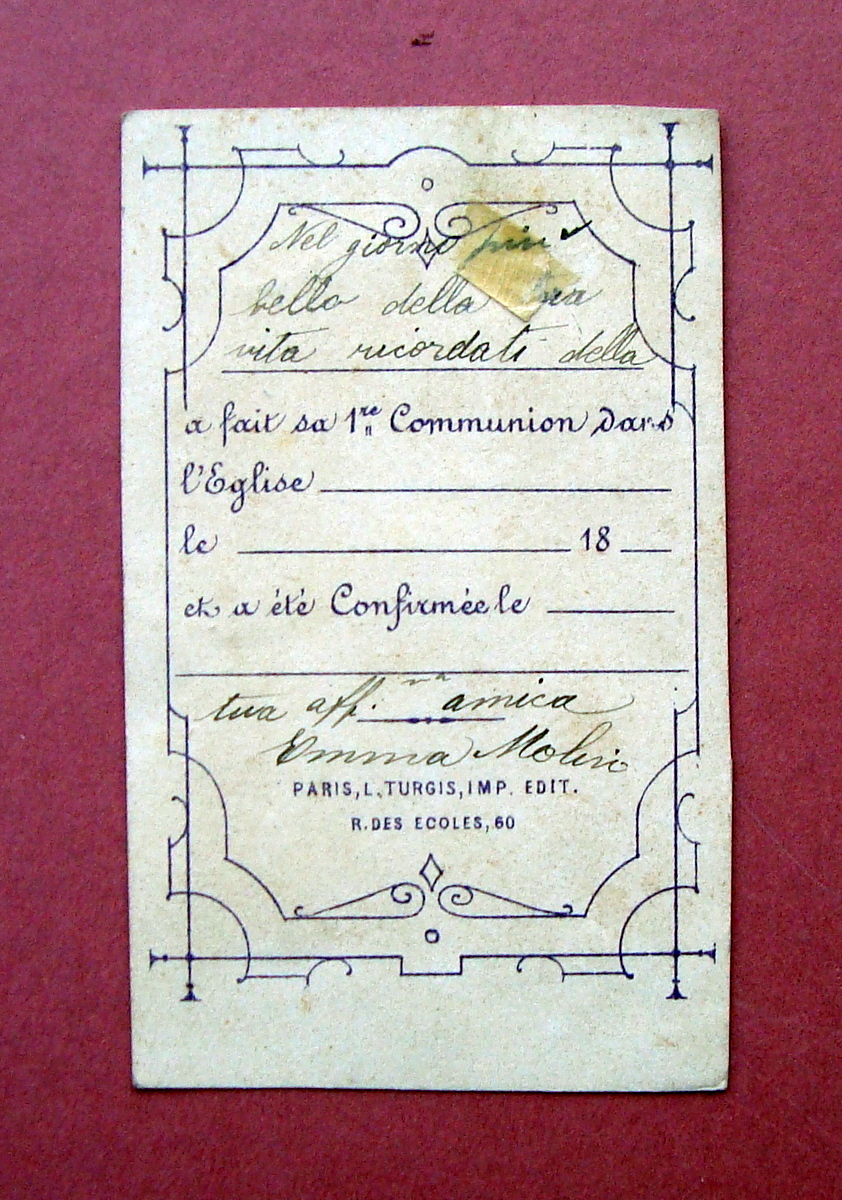 Nel giorno più
bello della tua
vita ricordati della
a fait sa 1re Communion dans
l'Eglise
le 18
et a été Confirmée le
tua aff.ma amica
Emma Molin
PARIS, L. TURGIS, IMP. EDIT.
R. DES ECOLES, 60